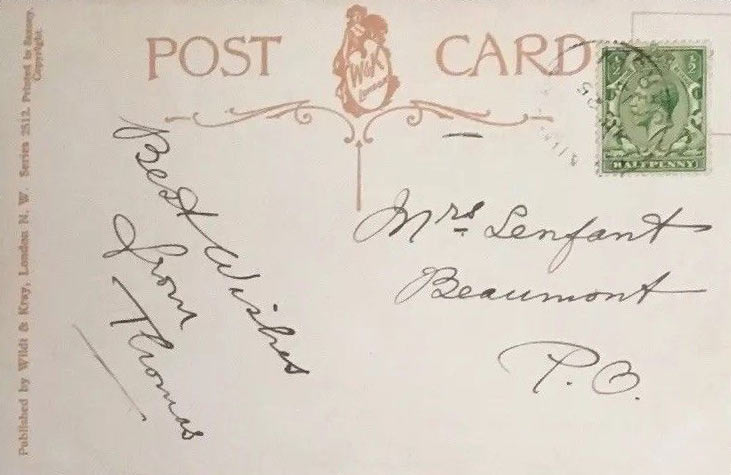 POST CARD
W&K
London
Published by Wildt & Kray, London N. W. Series 2512. Printed in Saxony.
Copyright.
½ ½
HALFPENNY
Best Wishes
from
Thomas
Mrs Lenfant
Beaumont
P.O.